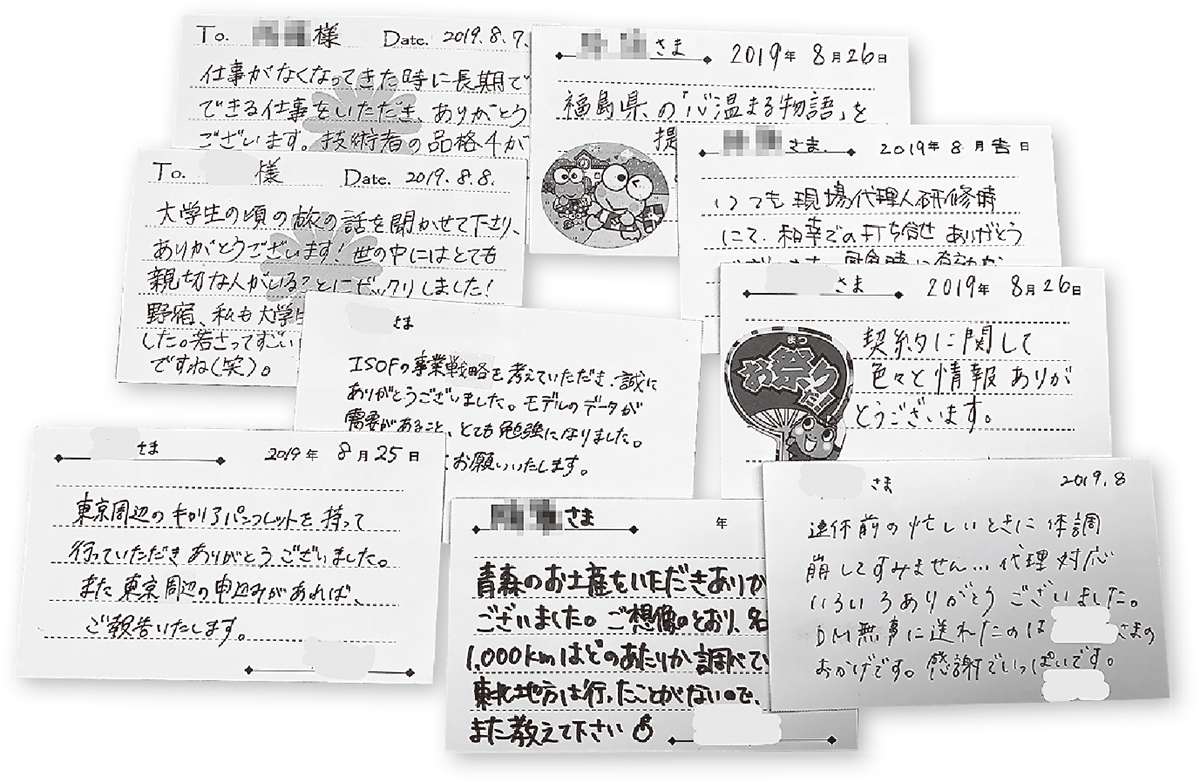 To. 様 Date. 2019.8.7.
仕事がなくなってきた時に長期で
できる仕事をいただき、ありがとう
ございます。技術者の品格4が
さま 2019年8月26日
福島県の「心温まる物語」を
提
さま 2019年8月吉日
いつも現場代理人研修時
にて、和幸での打ち合せ ありがとう
To. 様 Date. 2019.8.8.
大学生の頃の旅の話を聞かせて下さり、
ありがとうございます!世の中にはとても
親切な人がいることにビックリしました!
野宿、私も大学生
した。若さってすごい
ですね(笑)。
さま
ISOFの事業戦略を考えていただき、誠に
ありがとうございました。モデルのデータが
需要があること、とても勉強になりました。
お願いいたします。
さま 2019年8月26日
まつ
お祭り
契約に関して
色々と情報 ありが
とうございます。
さま 2019年8月25日
東京周辺のキャリアパンフレットを持って
行っていただき ありがとうございました。
また東京周辺の申込みがあれば、
ご報告いたします。
さま 年
青森のお土産をいただきありが
ございました。ご想像のとおり、名
1,000kmはどのあたりか調べて
東北地方は行ったことがないので、
また教えて下さい
さま 2019.8
連休前の忙しいときに体調
崩してすみません…代理対応
いろいろありがとうございました。
DM無事に送れたのは さまの
おかげです。感謝でいっぱいです。